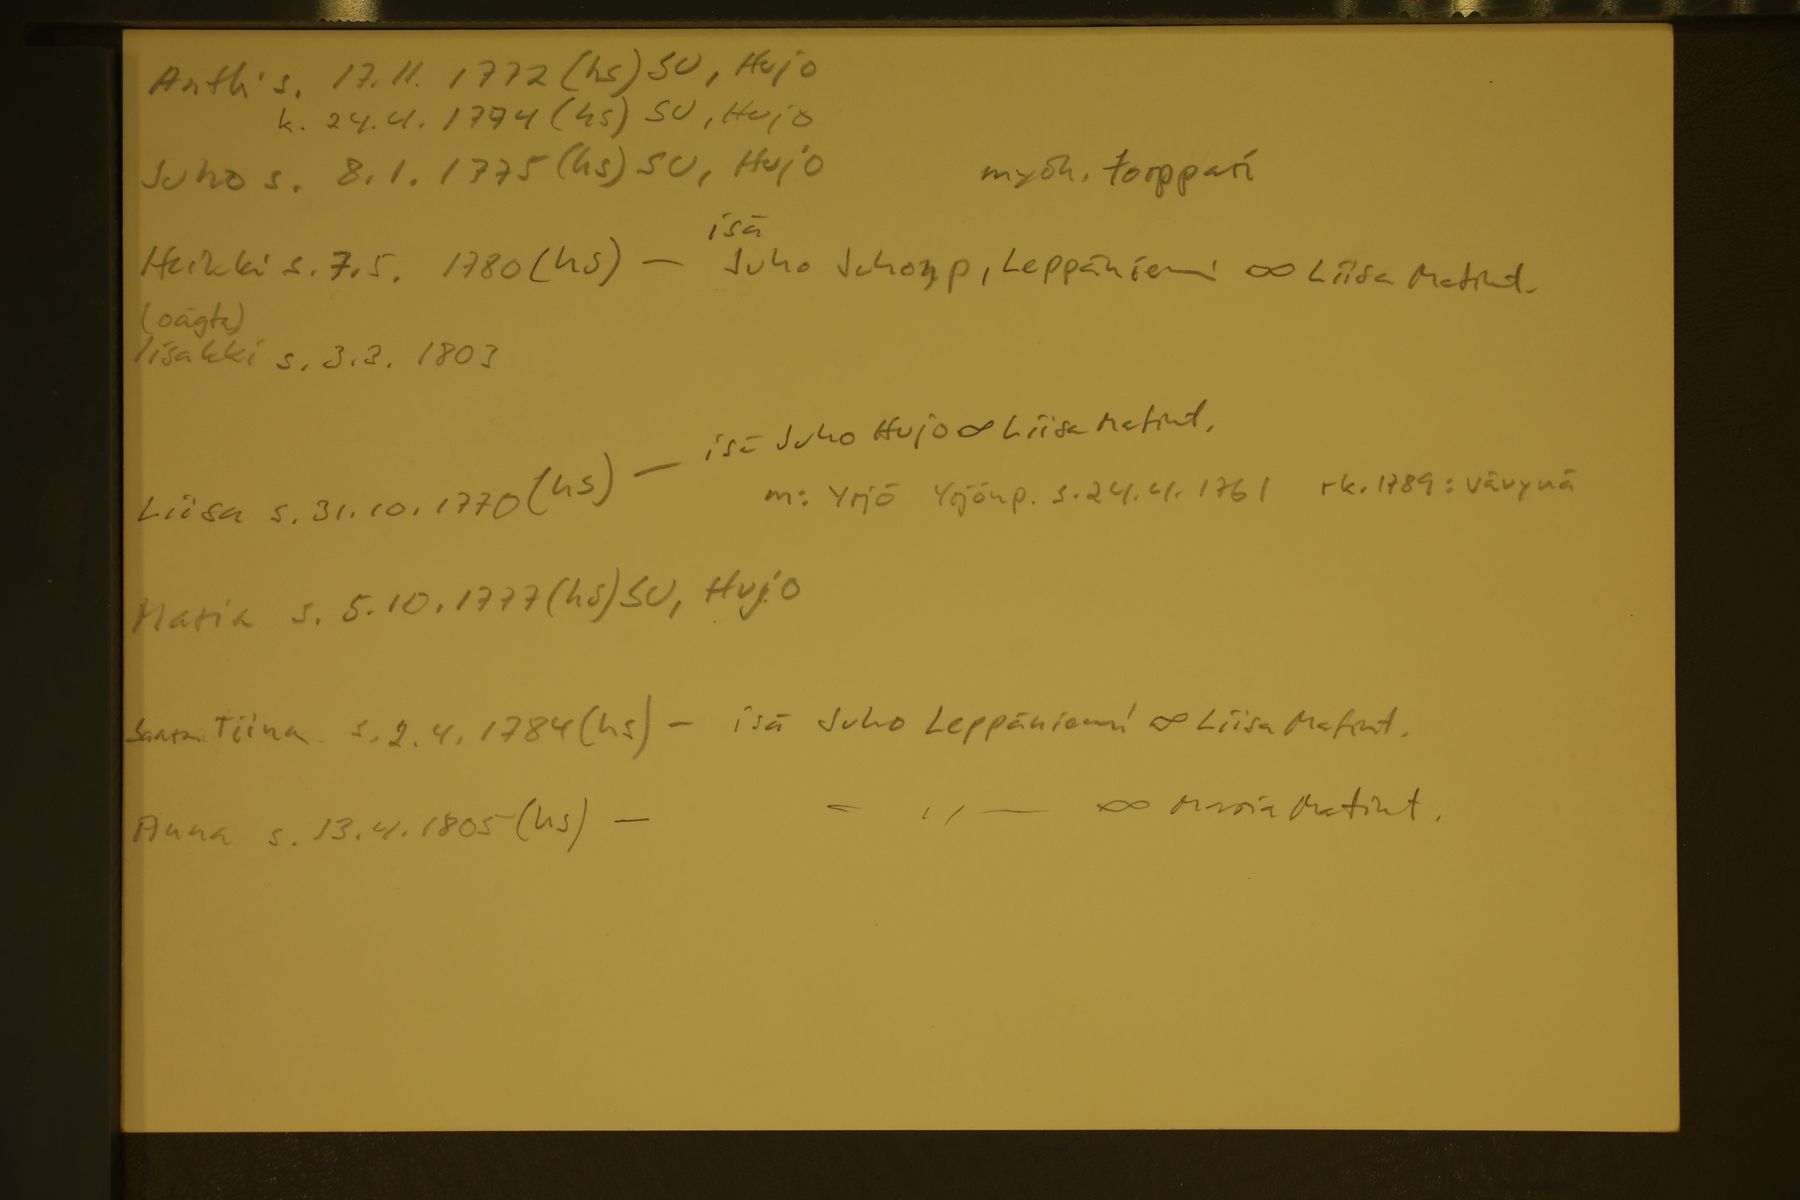 Antti s. 17.11. 1772 (hs) SU, Hujo
k. 24.4. 1774 (hs) SU, Hujo
Juho s. 8.1. 1775 (hs) SU, Hujo myöh. torppari
isä
Heikki s. 7.5. 1780 (hs) — Juho Juhonp, Leppäniemi ∞ Liisa Matint.
(oägta)
Iisakki s. 3.3. 1803
isä Juho Hujo ∞ Liisa Matint.
Liisa s. 31.10.1770 (hs) —
m: Yrjö Yrjönp. s. 24.4. 1761 rk. 1789: vävynä
Maria s. 5.10.1777 (hs) SU, Hujo
Tiina s. 2.4. 1784 (hs) — isä Juho Leppäniemi ∞ Liisa Matint.
Anna s. 13.4. 1805 (hs) — — ,, — ∞ Maria Matint.